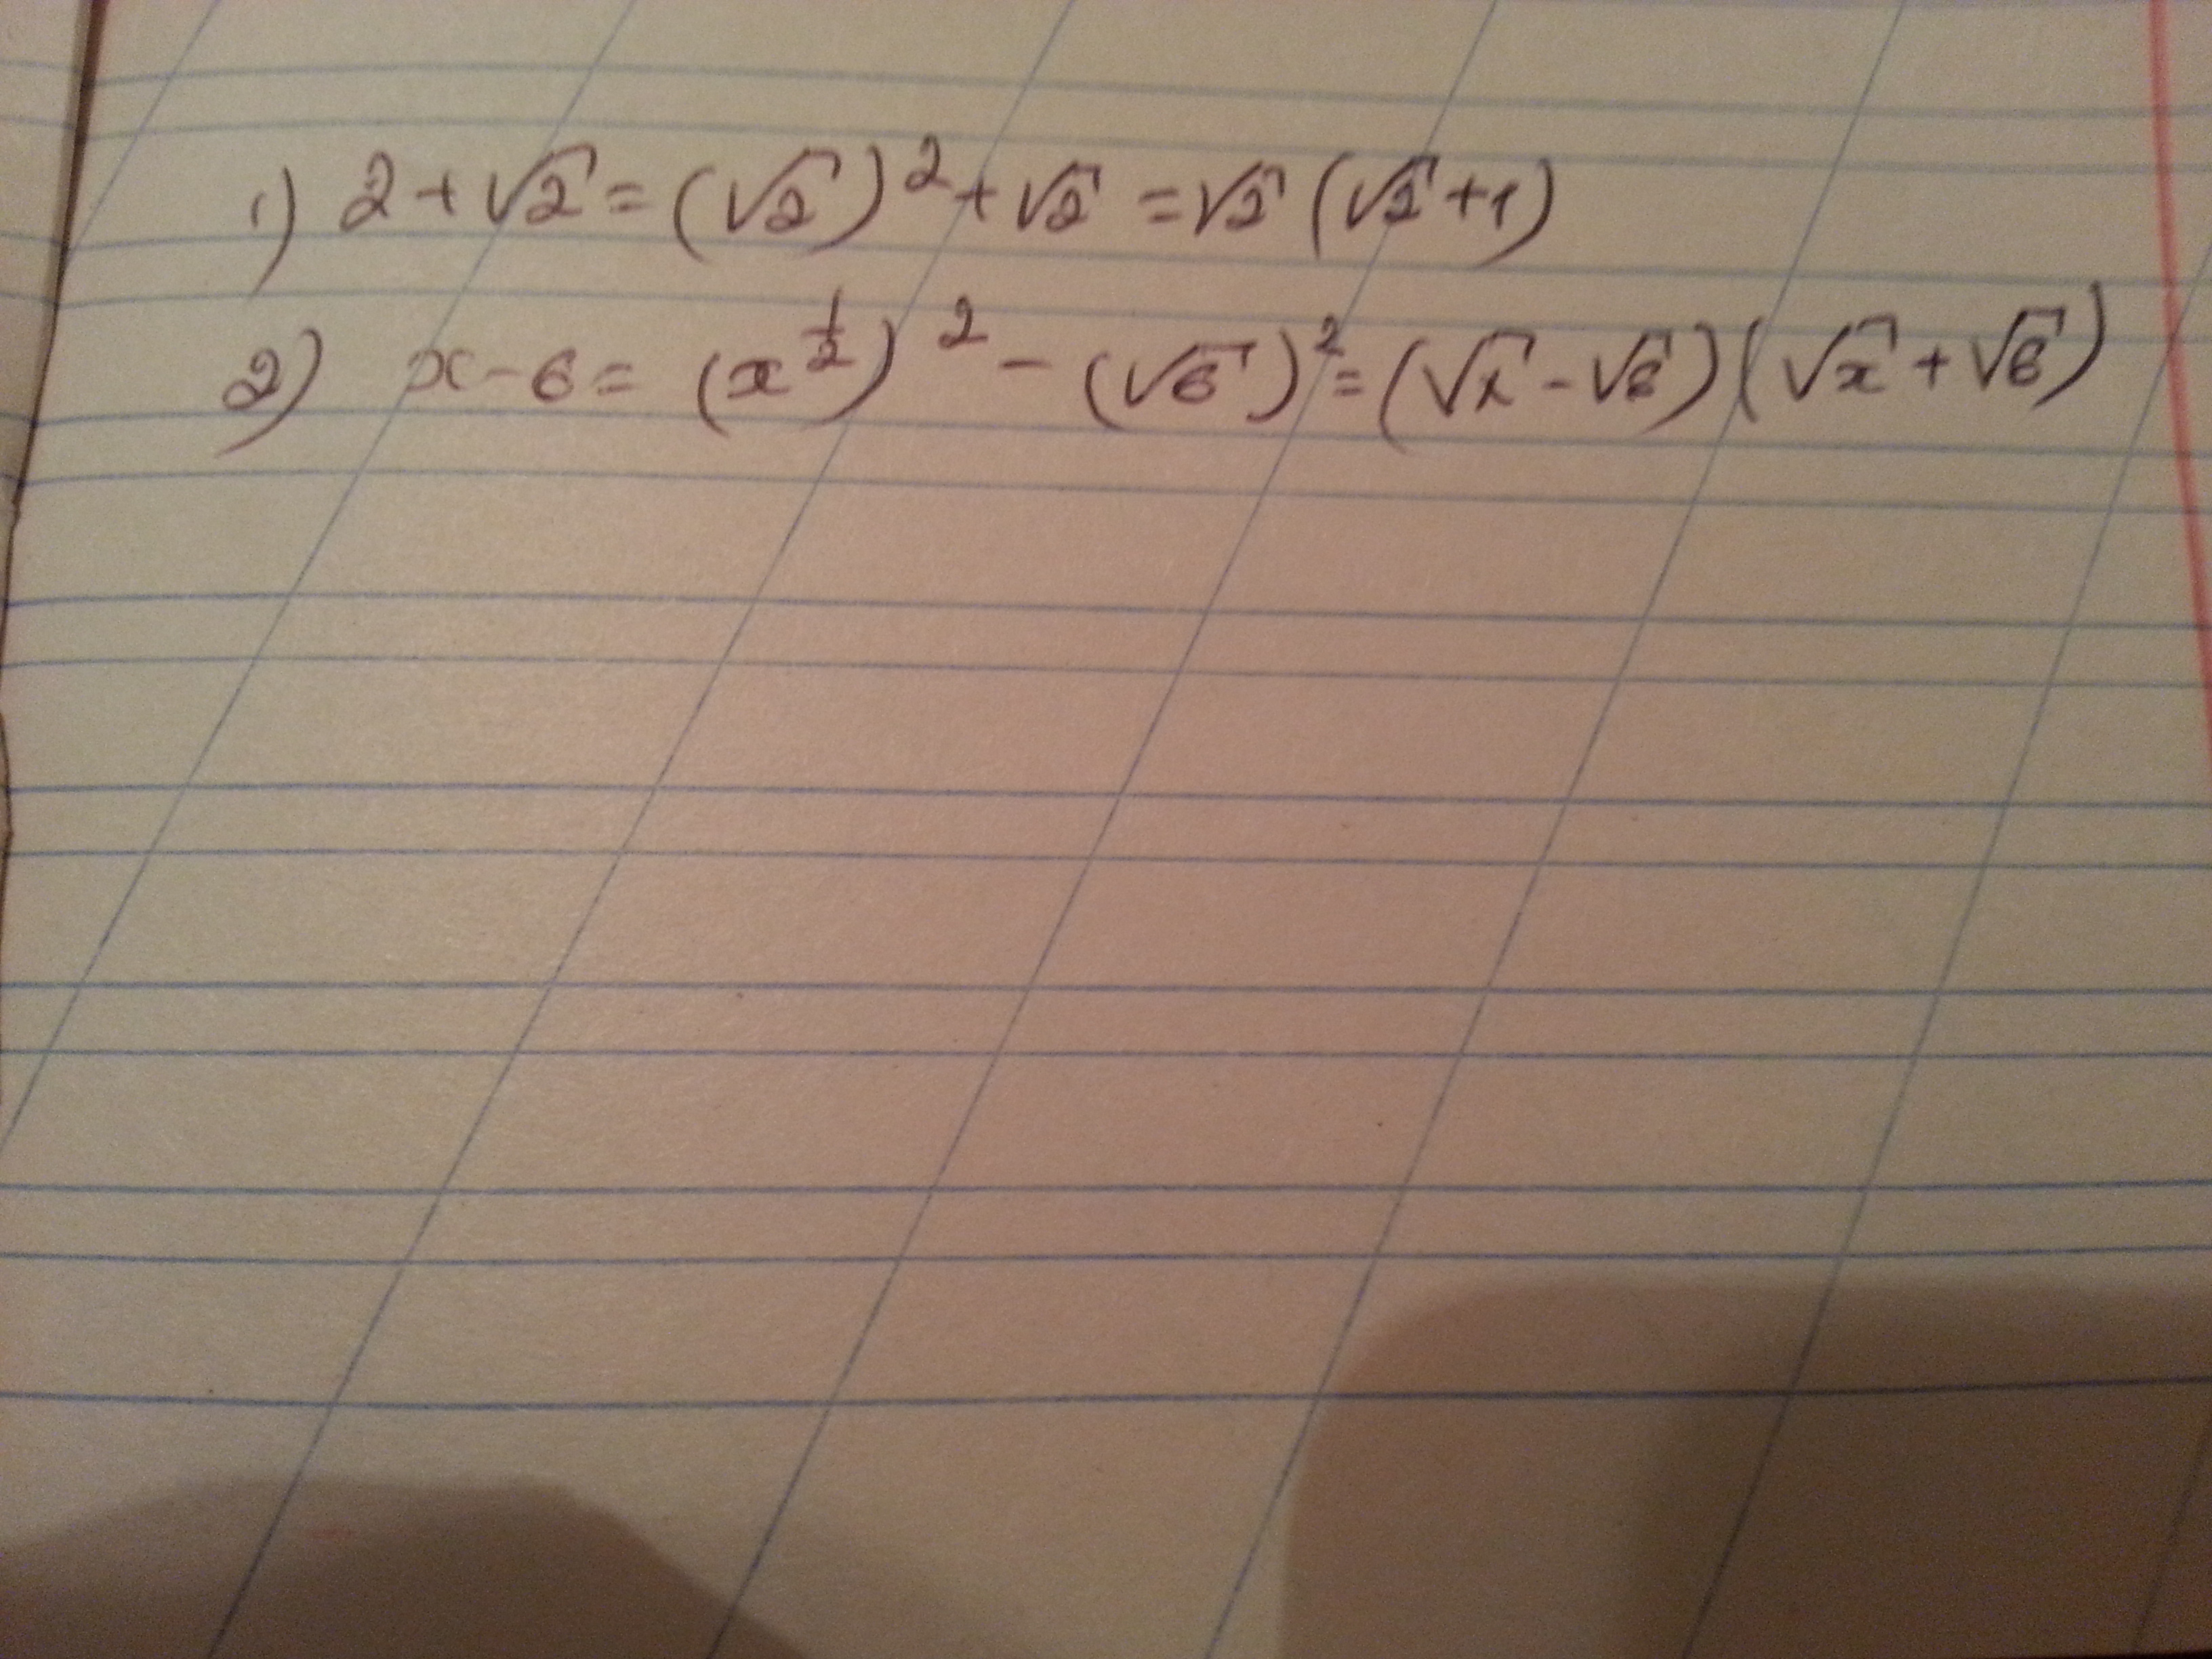 1) 2+√2=(√2)²+√2=√2(√2+1)
2) x-6=(x^½)²-(√6)²=(√x-√6)(√x+√6)